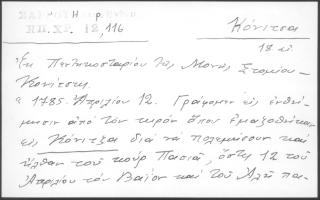 Ηπ. Χρ. 12, 116
Κόνιτσα
18 αἰ.
Ἐκ Πεντηκοσταρίου τῆς Μονῆς Στομίου –
Κονίτσης.
« 1785. Ἀπριλίου 12. Γράφομεν εἰς ἐνθύ-
μησιν ἀπὸ τὸν καιρὸν ὅπου ἐμαζώθηκαν
εἰς Κόνιτζαν διὰ νὰ πολεμήσουν καὶ
ἦλθαν τοῦ Κούρ Πασιᾶ, ὅστις 12 τοῦ
Ἀπριλίου τῶν Βαΐων καὶ τοῦ Ἀλῆ πα-